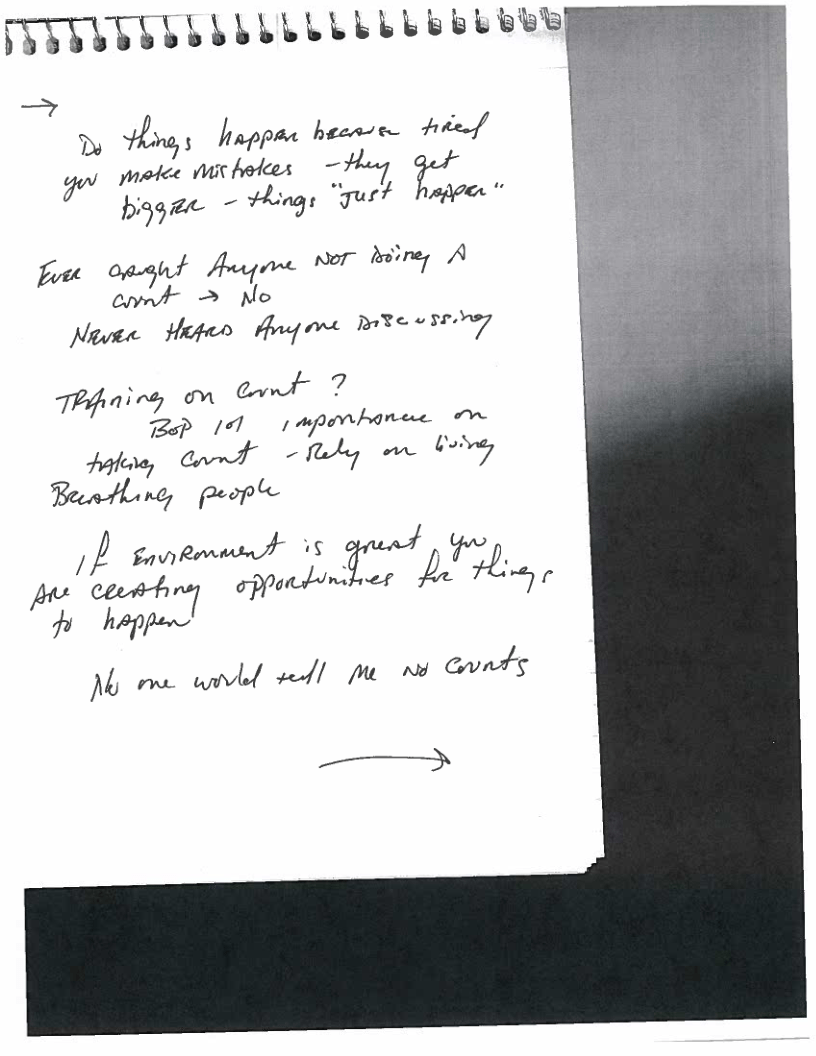 →
Do things happen because tired
you make mistakes - they get
bigger - things "just happen"
Ever caught Anyone NOT doing A
count → No
Never Heard Anyone Discussing
Training on Count ?
BOP 101 importance on
taking Count - Rely on living
Breathing people
if Environment is great you
Are creating opportunities for things
to happen
No one would tell me no counts
→